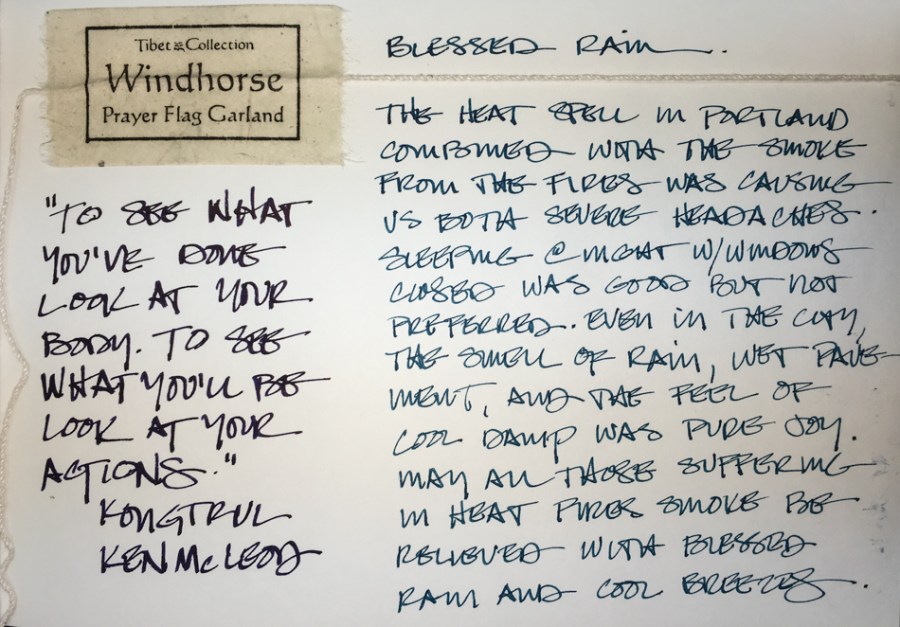 Tibet Collection
Windhorse
Prayer Flag Garland
"TO SEE WHAT
YOU'VE DONE
LOOK AT YOUR
BODY. TO SEE
WHAT YOU'LL BE
LOOK AT YOUR
ACTIONS."
KONGTRUL
KEN McLEOD
BLESSED RAIN.
THE HEAT SPELL IN PORTLAND
COMBINED WITH THE SMOKE
FROM THE FIRES WAS CAUSING
US BOTH SEVERE HEADACHES.
SLEEPING @ NIGHT W/WINDOWS
CLOSED WAS GOOD BUT NOT
PREFERRED. EVEN IN THE CITY,
THE SMELL OF RAIN, WET PAVE-
MENT, AND THE FEEL OF
COOL DAMP WAS PURE JOY.
MAY ALL THOSE SUFFERING
IN HEAT FIRES SMOKE BE
RELIEVED WITH BLESSED
RAIN AND COOL BREEZES.